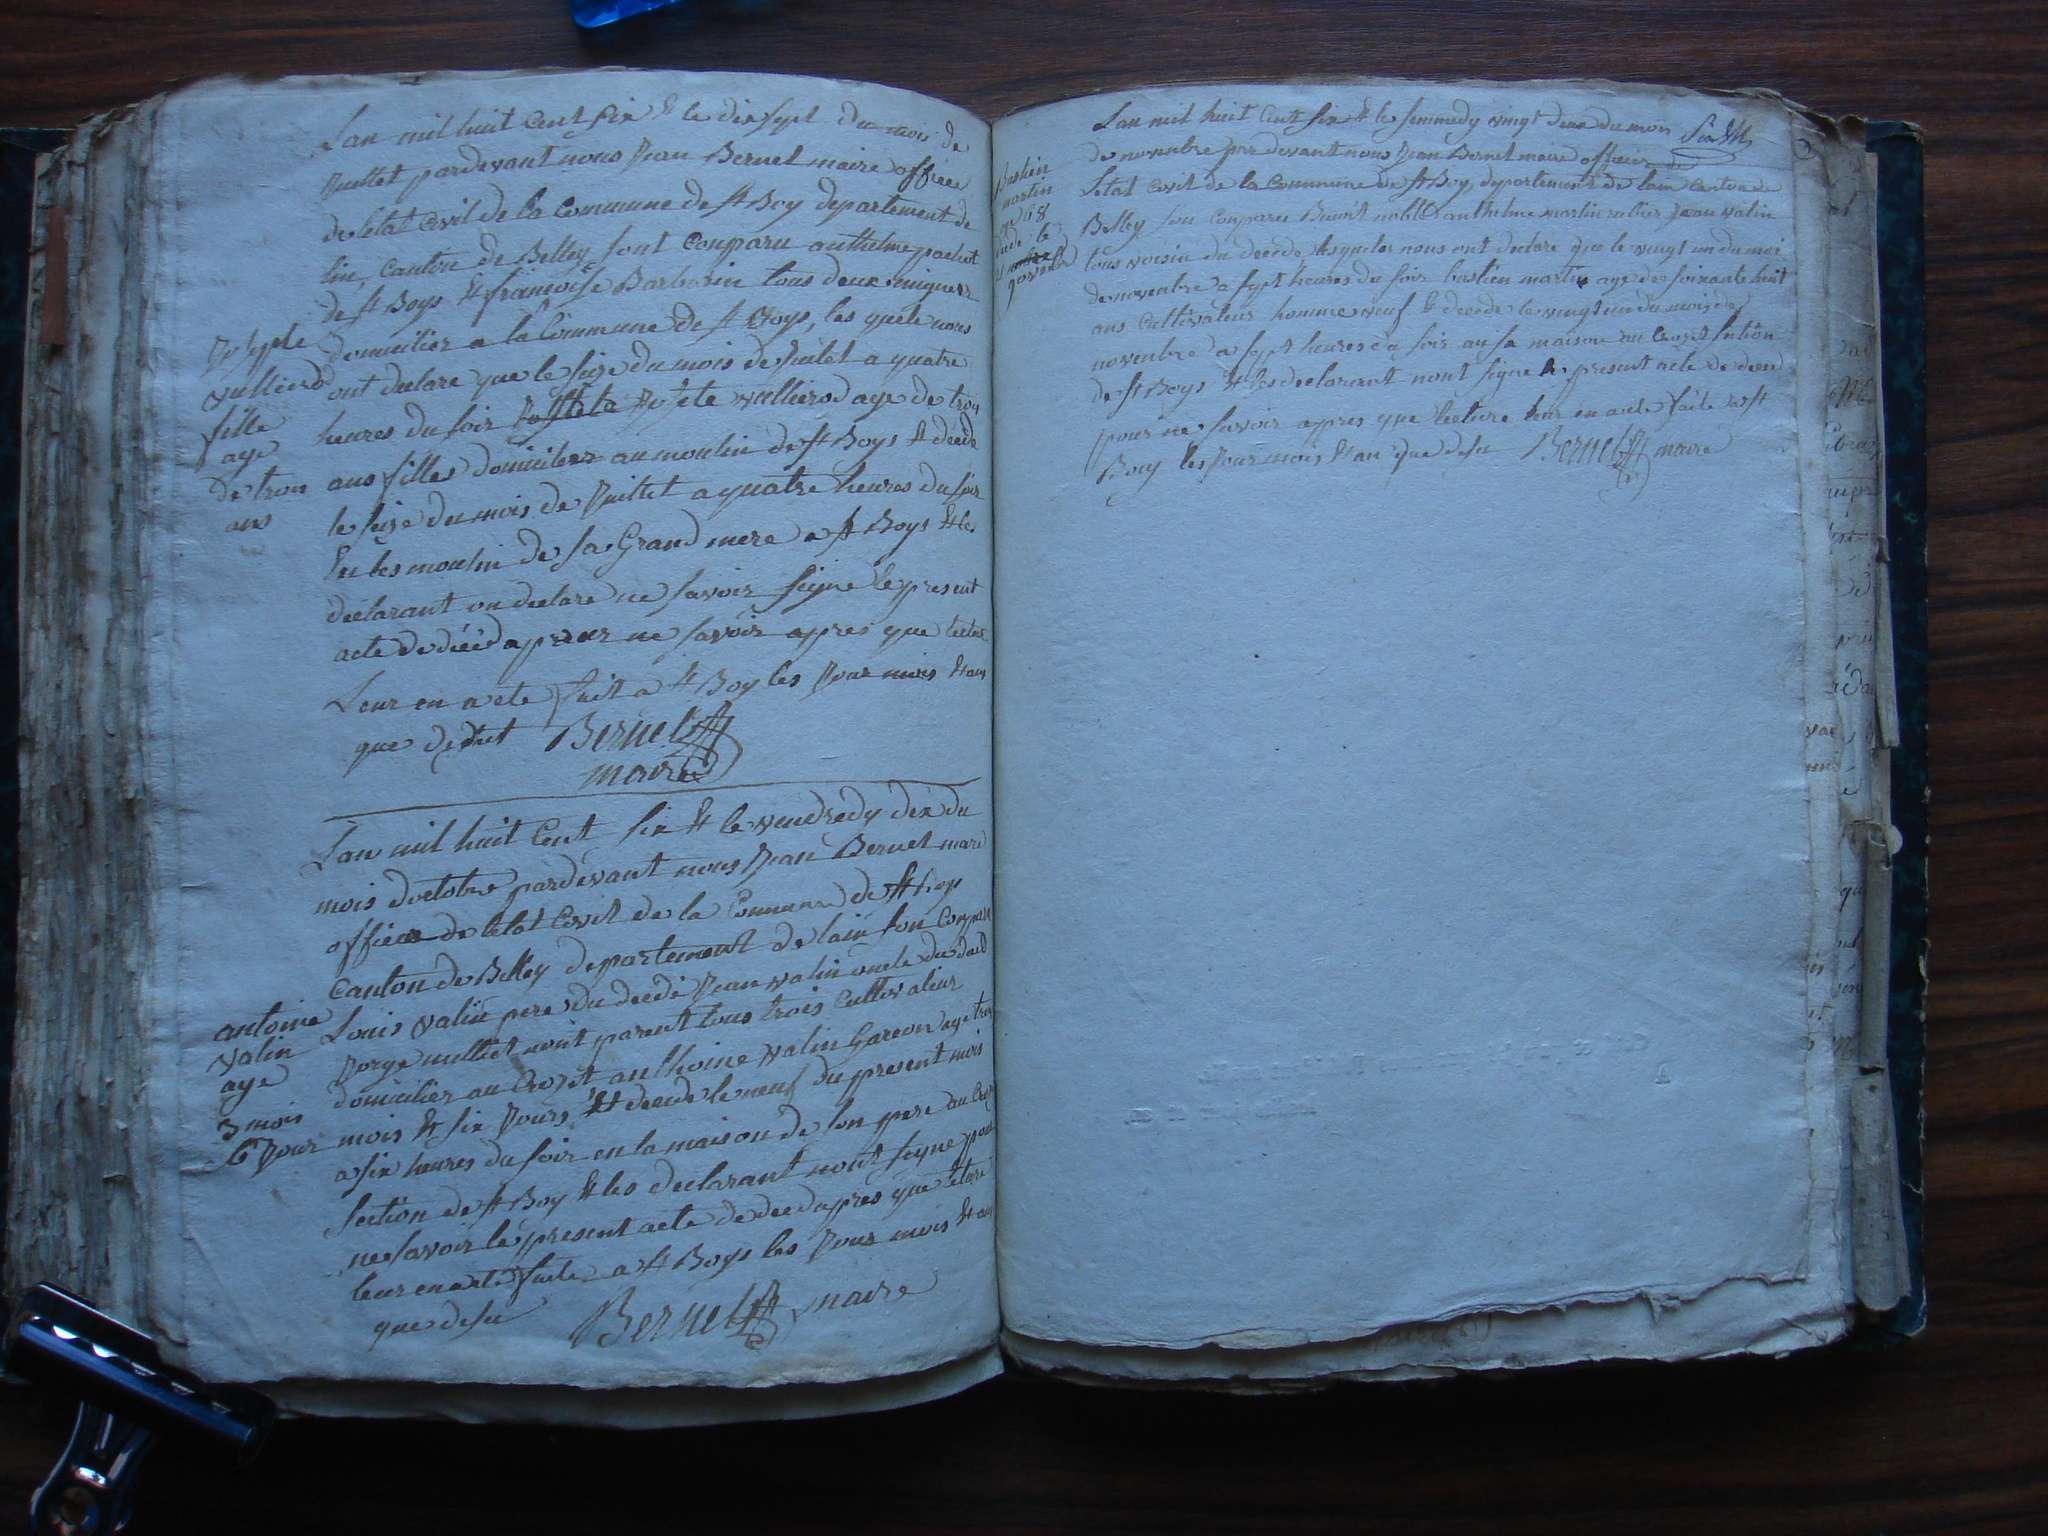 Lan mil huit Cent six & le dix sept du mois de
Juillet pardevant nous Jean Bernet maire officie
de letat Civil de la Commune de st Boy departement de
lin, Canton de Belley sont Conparu anthelme pochet
de st Boys & françoise Barbarin tous deux
domicilier a la Commune de st Boys, les quels nous
ont declare que le seize du mois de Juilet a quatre
heures du soir Josete vullierod age de trois
ans fille domicilier au moulin de st Boys & décédé
le seize du mois de Juillet a quatre heures du soir
En les moulin de sa Grand mere a st Boys & les
déclarant on declare ne savoir signe le present
acte de décé ne savoir apres que lectur
Leur en a ete fait a st Boy les Jour mois & an
que Bernet
maire
vullierod
fille
age
de trois
ans
Lan mil huit Cent six & le vendredy dix du
mois doctobre pardevant nous Jean Bernet mare
officier de letat Civil de la Commune de st Boys
Canton de Belley departement de lain son Conparu
Louis valin pere du decedé Jean valin oncle du
parent tous trois Cultivateur
domicilier au Crozet anthoine valin Garcon age trois
mois & six Jours & decede le neuf du present mois
a six heures du soir en la maison de son pere au Crozet
section de st Boy & les declarant nont signe pour
ne savoir le present acte de deced apres que leture
leur en a ete faite a st Boys les Jour mois & an
que desu Bernet maire
antoine
valin
age
3 mois
6 Jour
Lan mil huit Cent six & le sammedy vingt deux du mois
de novenbre par devant nous Jean Bernet maire officier de
letat Civil de la Commune de st Boy departement de lain Canton de
Belley son Conparu Benoit noblet anthelme martin Jean valin
tous voisin du decede lesqueles nous ont declare que le vingt un du moi
de novenbre a sept heures du soir bastien martin age de soixante huit
ans Cultivateur homme veuf & decede le vingt un du mois de
novenbre a sept heures du soir an sa maison au Crozet section
de st Boys & les declarant nont signe le present acte de deced
pour ne savoir apres que lecture leur en a ete faite a st
Boy les Jour mois & an que desu Bernet maire
Bastien
martin
68